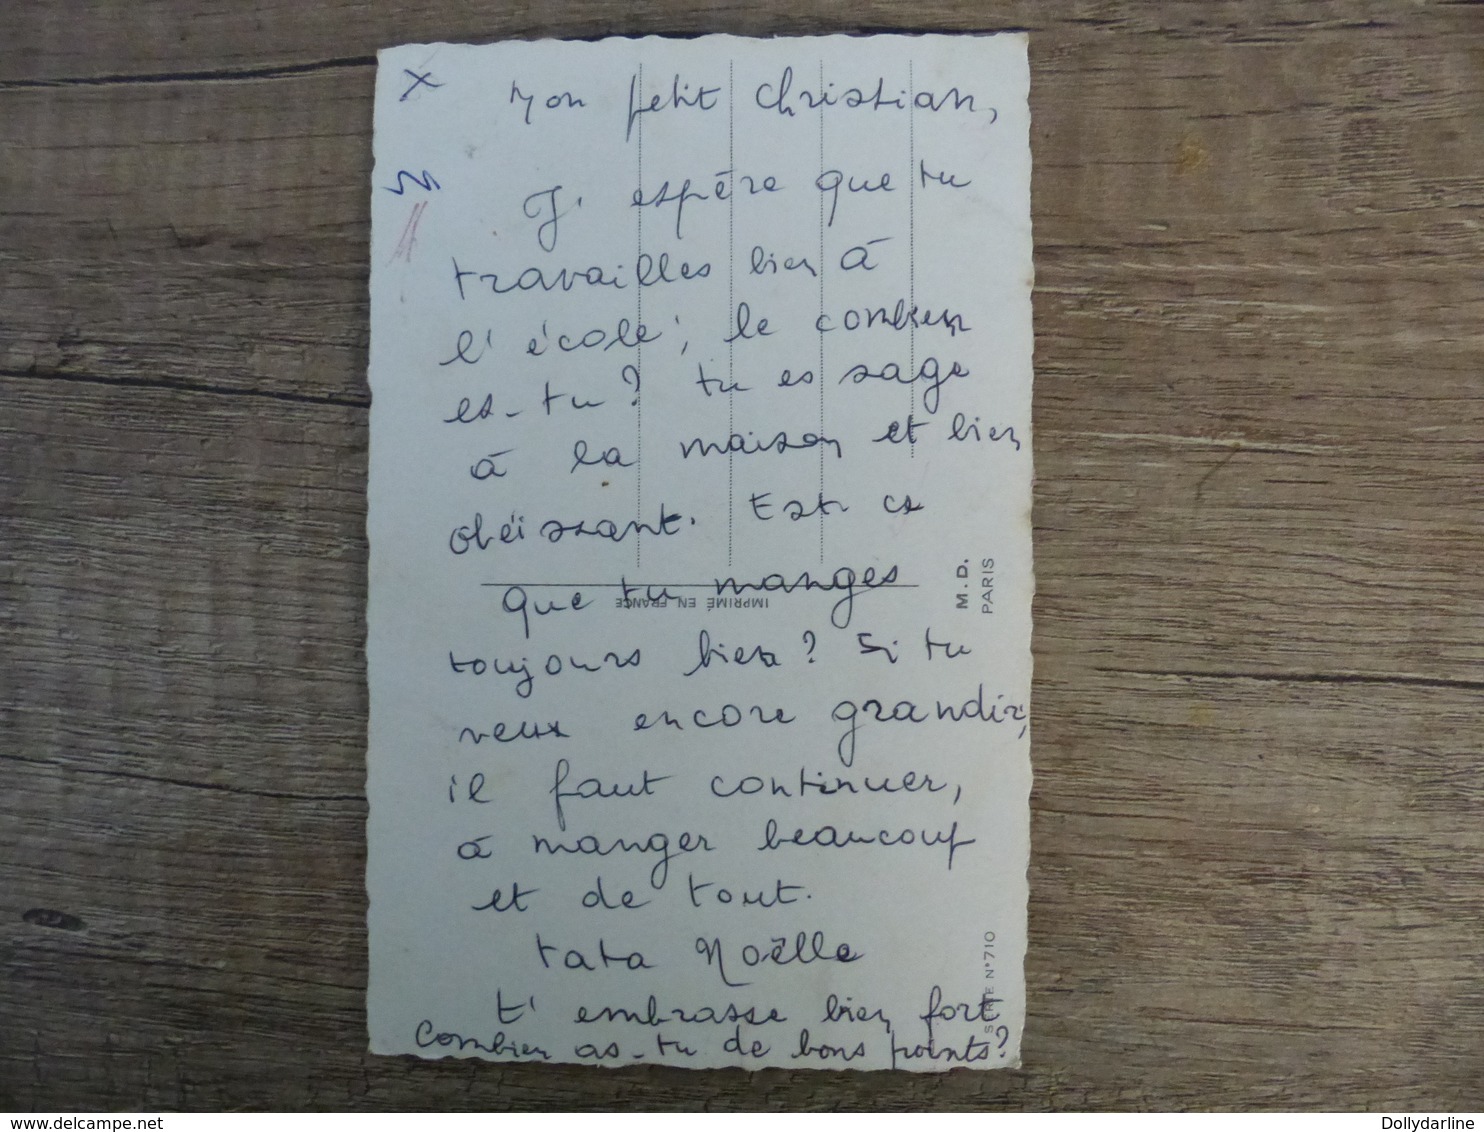 X
Mon petit Christian,
J' espère que tu
travailles bien à
l' école ; le combien
es-tu ? tu es sage
à la maison et bien
obéissant. Est ce
que tu manges
IMPRIMÉ EN FRANCE
M.D.
PARIS
toujours bien ? Si tu
veux encore grandir,
il faut continuer,
à manger beaucoup
et de tout.
tata Noëlle
SERIE N°710
t' embrasse bien fort
Combien as-tu de bons points ?
www.delcampe.net
Dollydarline